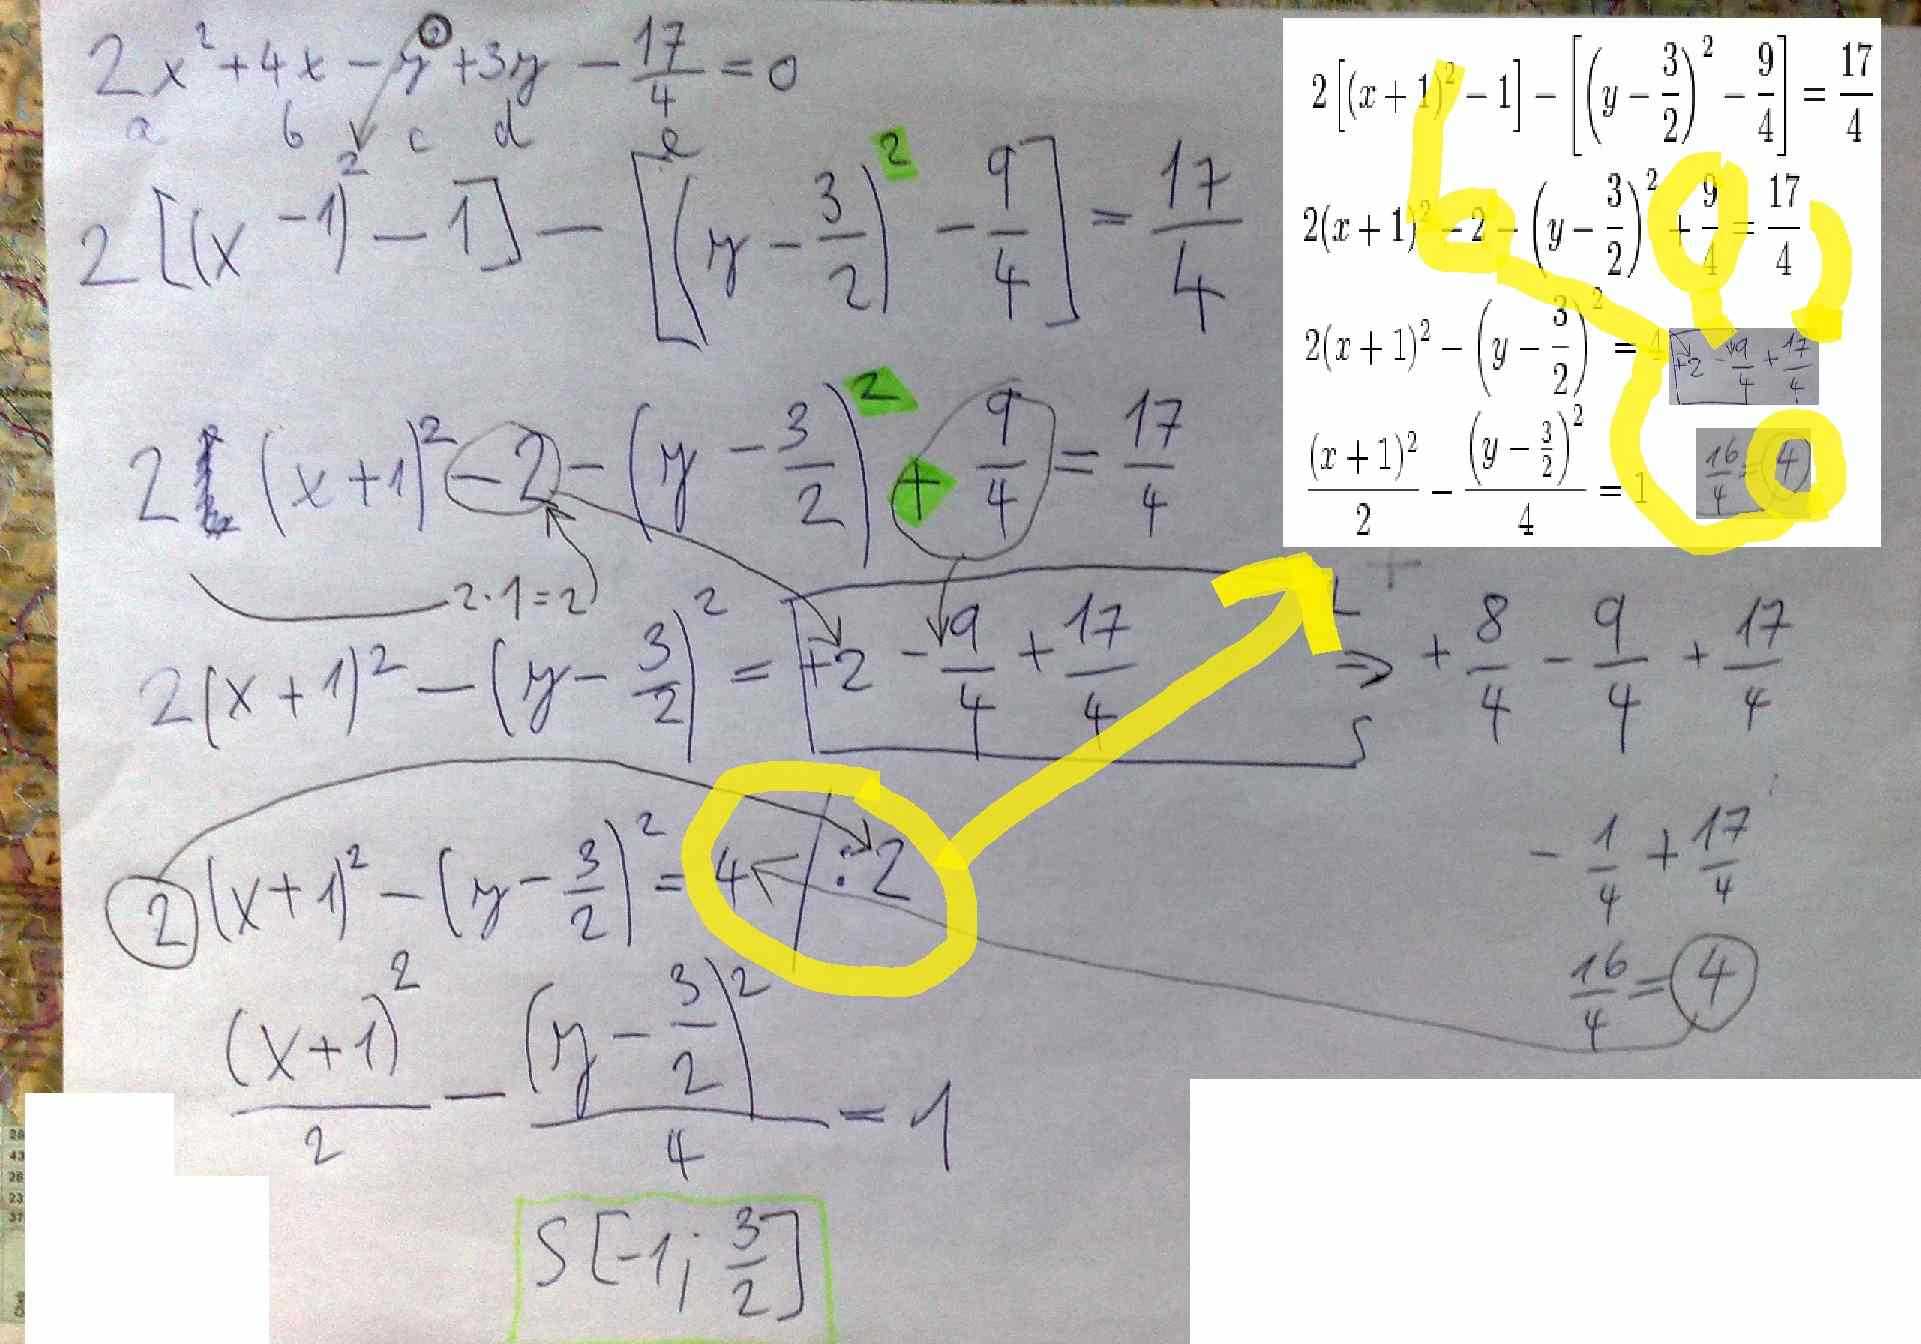 2x² + 4x - y² + 3y - 17/4 = 0
a b c d e
2[(x - 1)² - 1] - [(y - 3/2)² - 9/4] = 17/4
2 (x + 1)² - 2 - (y - 3/2)² + 9/4 = 17/4
2·1=2
2(x + 1)² - (y - 3/2)² = +2 - 9/4 + 17/4 ⇒ + 8/4 - 9/4 + 17/4
- 1/4 + 17/4
16/4 = 4
2(x + 1)² - (y - 3/2)² = 4 / :2
(x + 1)²/2 - (y - 3/2)²/4 = 1
S[-1; 3/2]
2[(x + 1)² - 1] - [(y - 3/2)² - 9/4] = 17/4
2(x + 1)² - 2 - (y - 3/2)² + 9/4 = 17/4
2(x + 1)² - (y - 3/2)² = 4 +2 - 9/4 + 17/4
(x + 1)²/2 - (y - 3/2)²/4 = 1 16/4 = 4
28
43
26
23
37